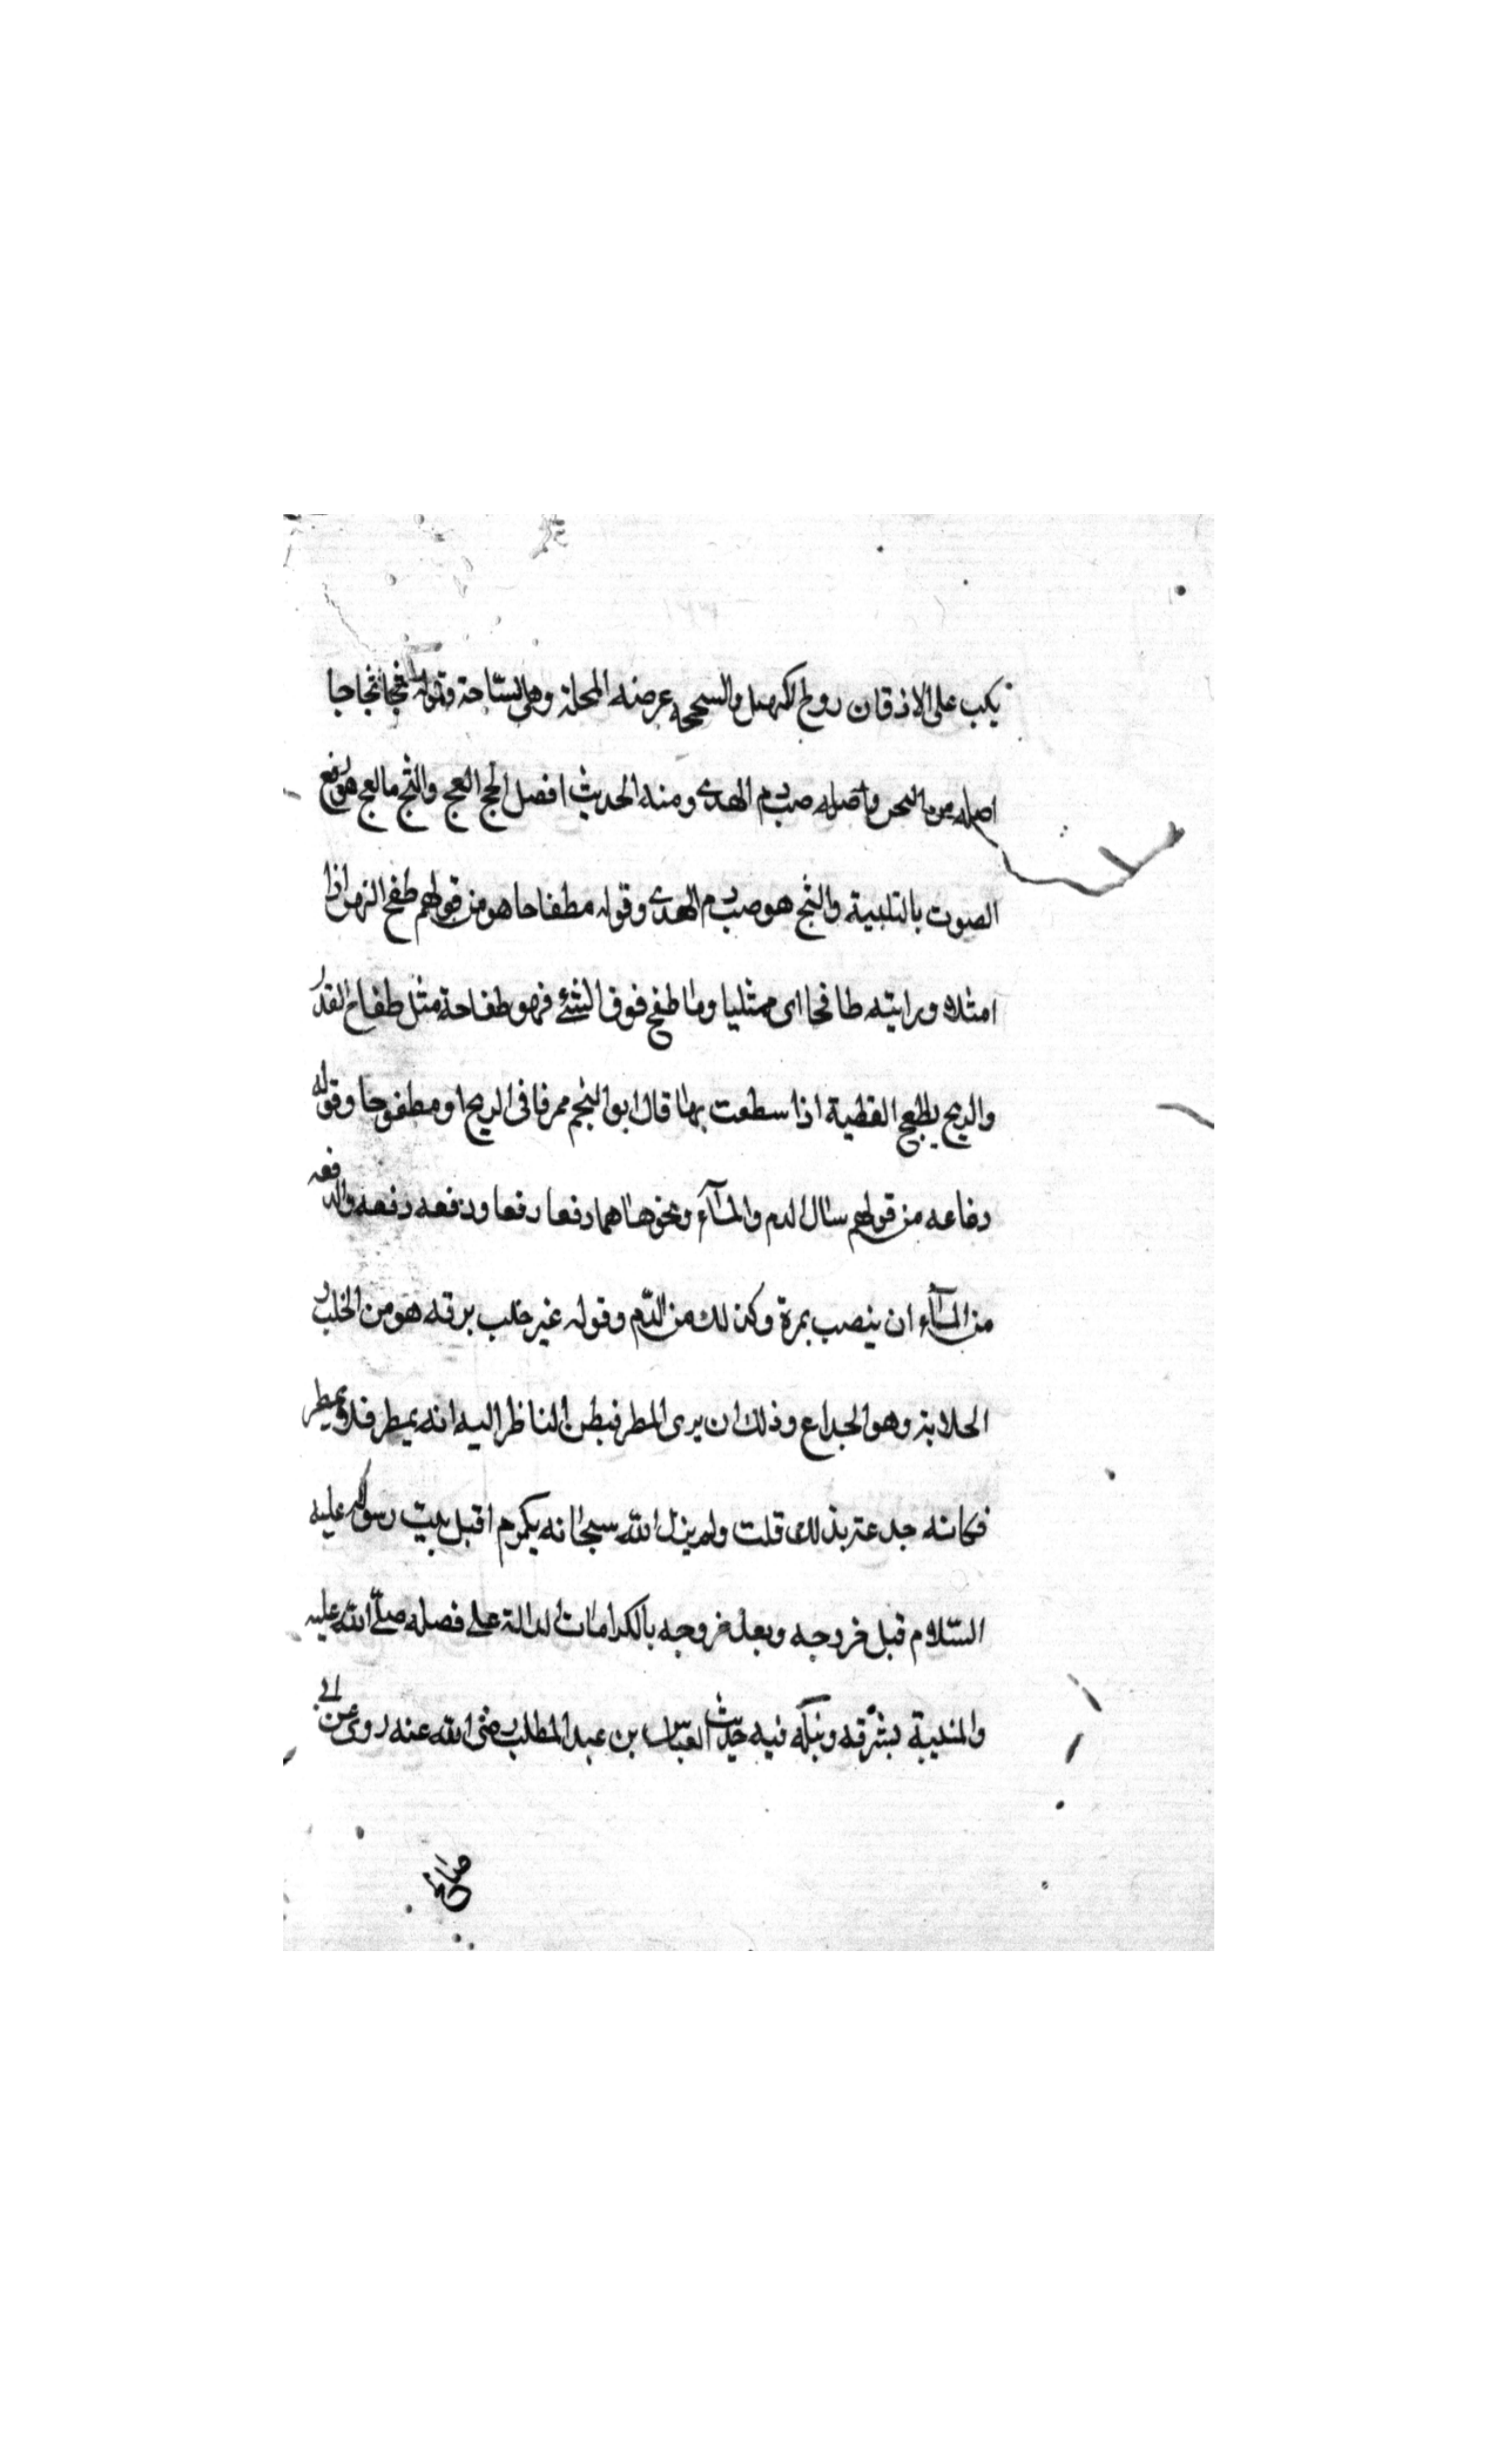 يكب على الاذقان روح الكهبل والسحجه عرصه المحلة وهى الساحة وقوله ثجا ثجاجا
اصله من النحر واصله صب دم الهدى ومنه الحديث افضل الحج العج والثج مالعج هو رفع
الصوت بالتلبية والثج هو صب دم الهدى وقوله مطفاحا هو من قولهم طفح النهر اذا
امتلاء ورايته طافحا اى ممتليا وما طفح فوق الشئ فهو طفاحة مثل طفاح القدر
والريح يطفح القطية اذا سطعت بها قال ابو النجم ممرقا فى الريح او مطفوحا وقوله
دفاعه من قولهم سال الدم والمآء ونحوهما دفعا دفعا ودفعه دفعه والدفعه
من المآء ان ينصب بمرة وكذلك من الدم وقوله غير خلب برقه هو من الخلب و
الحلابة وهو الجداع وذلك ان يرى المطر فيظن الناظر اليه انه يمطر فلا يمطر
فكانه جدعته بذلك قلت ولم يزل الله سبحانه يكرم اقبل بيت رسوله عليه
السلام قبل خروجه وبعد خروجه بالكرامات الدالة على فصله صلى الله عليه
والمنبية بشرقه ونبله فيه حديث العباس بن عبد المطلب رضى الله عنه روى عن ابى